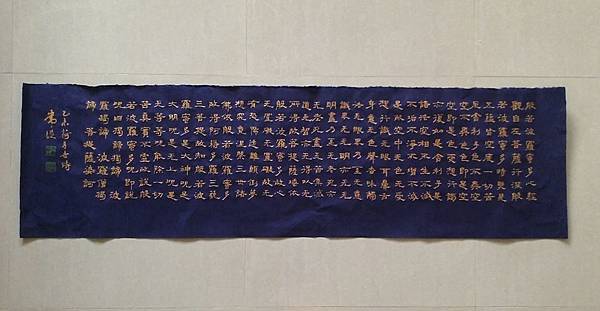 般若波羅蜜多心經
觀自在菩薩行深般
若波羅蜜多時照見
五蘊皆空度一切苦
厄舍利子色不異空
空不異色色即是空
空即是色受想行識
亦復如是舍利子是
諸法空相不生不滅
不垢不淨不增不減
是故空中无色无受
想行識无眼耳鼻舌
身意无色聲香味觸
法无眼界乃至无意
識界无无明亦无无
明盡乃至无老死亦
无老死盡无苦集滅
道无智亦无得以无
所得故菩提薩埵依
般若波羅蜜多故心
无罣礙无罣礙故无
有恐怖遠離顛倒夢
想究竟涅槃三世諸
佛依般若波羅蜜多
故得阿耨多羅三藐
三菩提故知般若波
羅蜜多是大神咒是
大明咒是无上咒是
无等等咒能除一切
苦真實不虛故說般
若波羅蜜多咒即說
咒曰揭諦揭諦 波
羅揭諦 波羅僧揭
諦 菩提薩婆訶
乙未